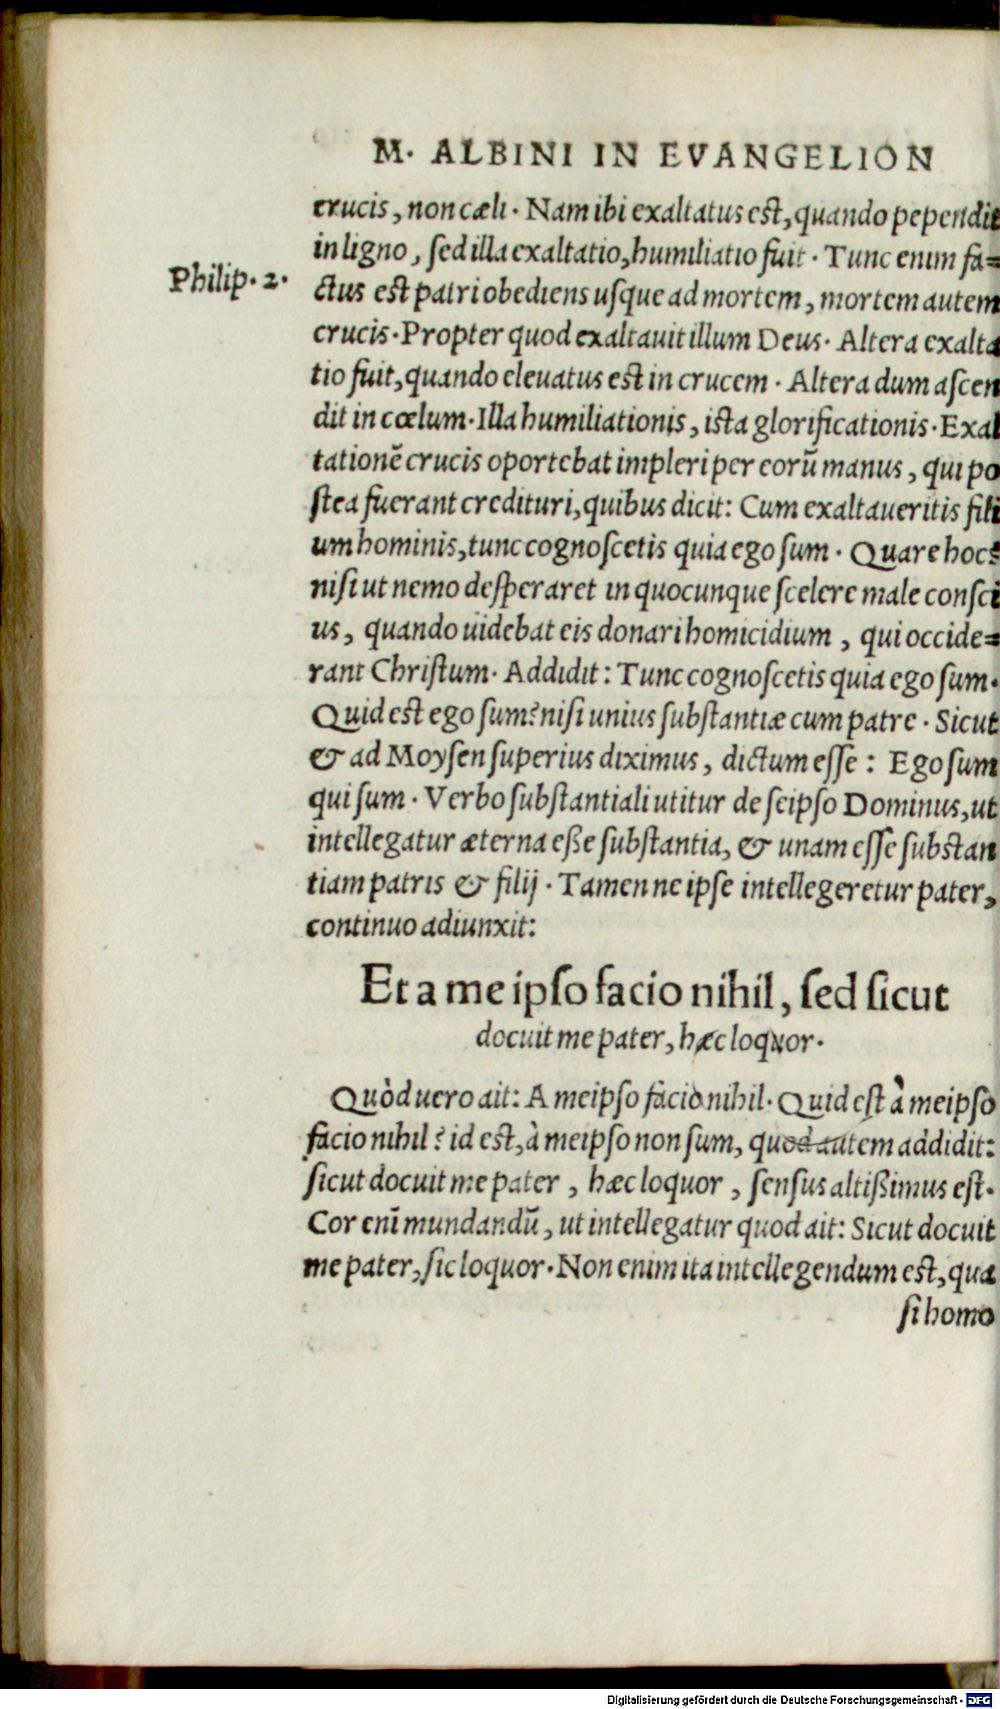 M. ALBINI IN EVANGELION
crucis, non cæli. Nam ibi exaltatus est, quando pependit
in ligno, sed illa exaltatio, humiliatio fuit. Tunc enim fa=
Philip. 2.
ctus est patri obediens usque ad mortem, mortem autem
crucis. Propter quod exaltauit illum Deus. Altera exalta
tio fuit, quando eleuatus est in crucem. Altera dum ascen
dit in cœlum. Illa humiliationis, ista glorificationis. Exal
tationē crucis oportebat impleri per eorū manus, qui po
stea fuerant credituri, quibus dicit: Cum exaltaueritis fili
um hominis, tunc cognoscetis quia ego sum. Quare hoc?
nisi ut nemo desperaret in quocunque scelere male consci
us, quando uidebat eis donari homicidium, qui occide=
rant Christum. Addidit: Tunc cognoscetis quia ego sum.
Quid est ego sum? nisi unius substantiæ cum patre. Sicut
& ad Moysen superius diximus, dictum esse: Ego sum
qui sum. Verbo substantiali utitur de seipso Dominus, ut
intellegatur æterna eße substantia, & unam esse substan
tiam patris & filij. Tamen ne ipse intellegeretur pater,
continuo adiunxit:
Et a me ipso facio nihil, sed sicut
docuit me pater, hæc loquor.
Quòd uero ait: A meipso facio nihil. Quid est à meipso
facio nihil? id est, à meipso non sum, quod autem addidit:
sicut docuit me pater, hæc loquor, sensus altißimus est.
Cor enī mundandū, ut intellegatur quod ait: Sicut docuit
me pater, sic loquor. Non enim ita intellegendum est, qua
si homo
Digitalisierung gefördert durch die Deutsche Forschungsgemeinschaft - DFG